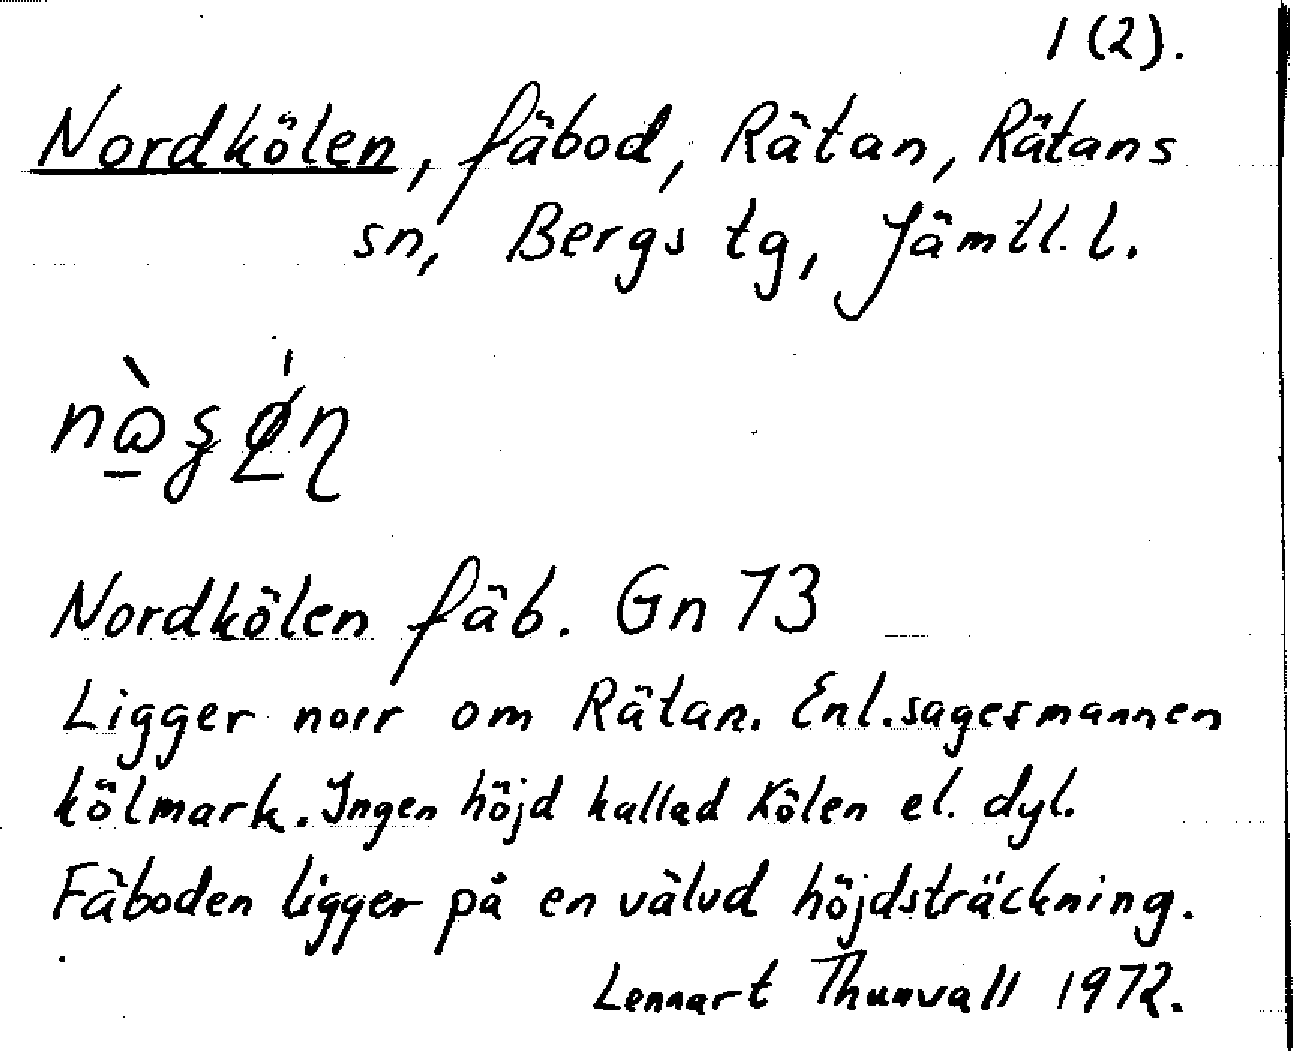 1 (2).
Nordkölen, fäbod, Rätan, Rätans
sn, Bergs tg, Jämtl. l.
Nordkölen fäb. Gn 73
Ligger norr om Rätan. Enl. sagesmannen
kölmark. Ingen höjd kallad Kölen el. dyl.
Fäboden ligger på en välvd höjdsträckning.
Lennart Thunvall 1972.